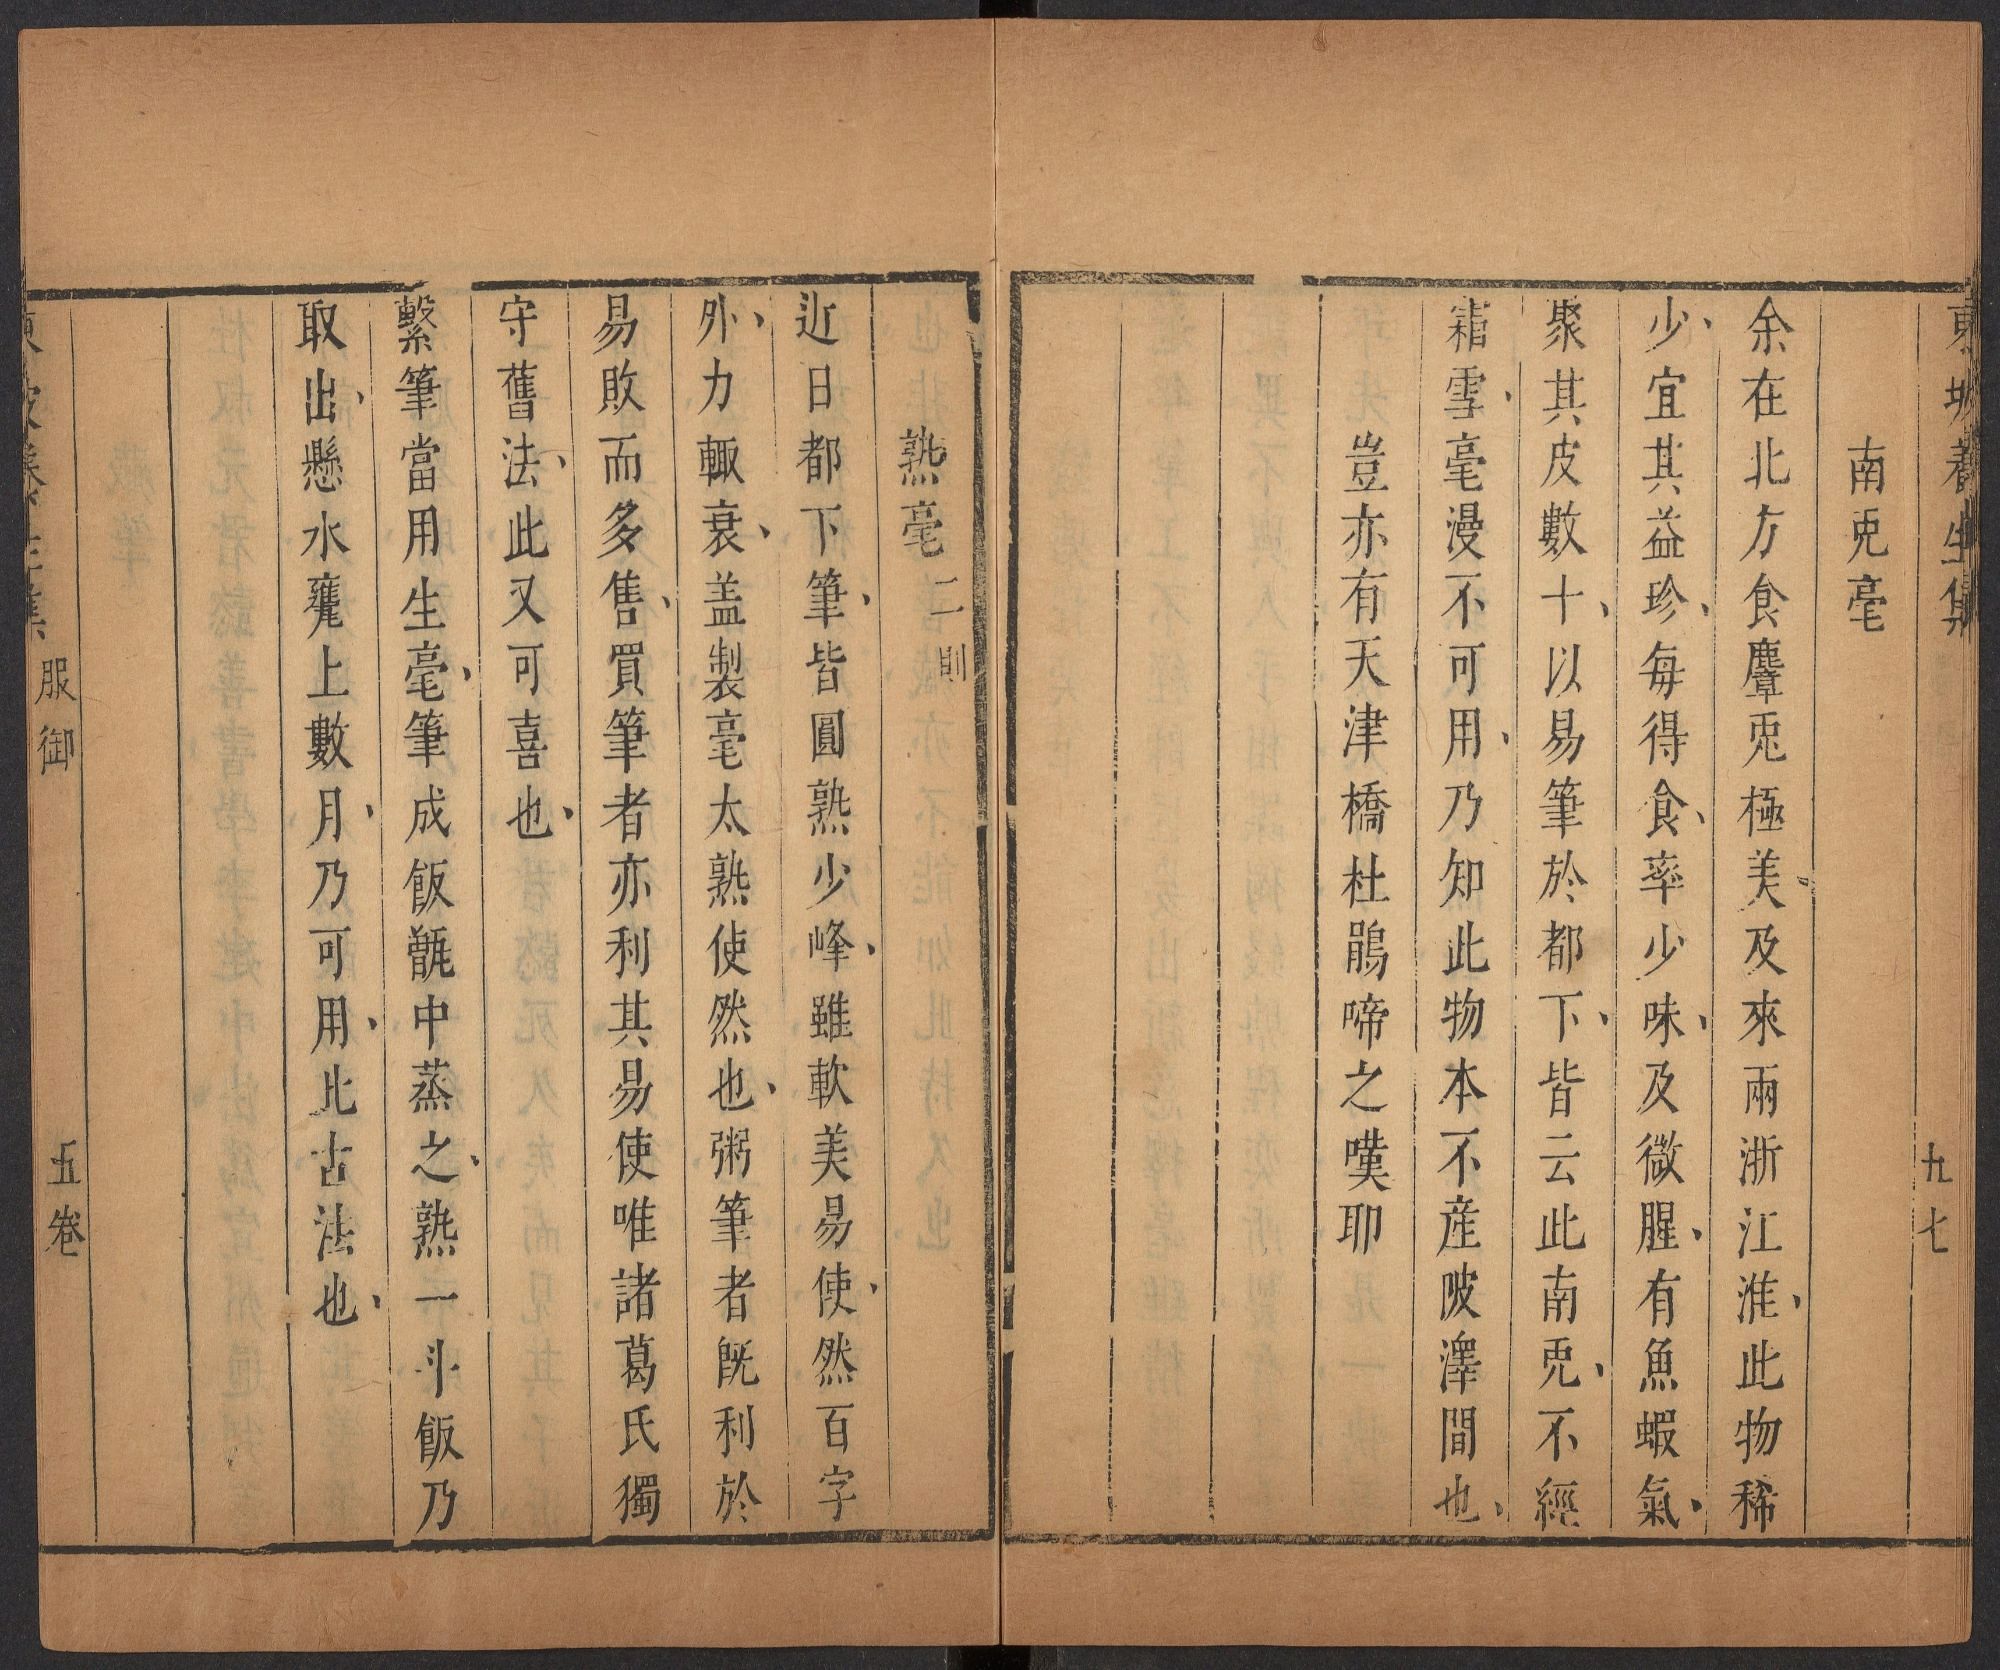 東坡養生集
九七
南兎毫
余在北方食麞兎極美及來兩浙江淮、此物稀
少、宜其益珍、每得食、率少味、及微腥、有魚蝦氣、
聚其皮數十、以易筆於都下、皆云此南兎、不經
霜雪、毫漫不可用、乃知此物本不産陂澤間也、
豈亦有天津橋杜鵑啼之嘆耶
熟毫二則
近日都下筆、皆圓熟少峰、雖軟美易使、然百字
外、力輙衰、盖製毫太熟使然也、粥筆者旣利於
易敗而多售、買筆者亦利其易使唯諸葛氏獨
守舊法、此又可喜也、
繫筆當用生毫、筆成飯甑中蒸之、熟一斗飯乃
取出、懸水甕上數月、乃可用、此古法也、
東坡養生集
服御
五卷